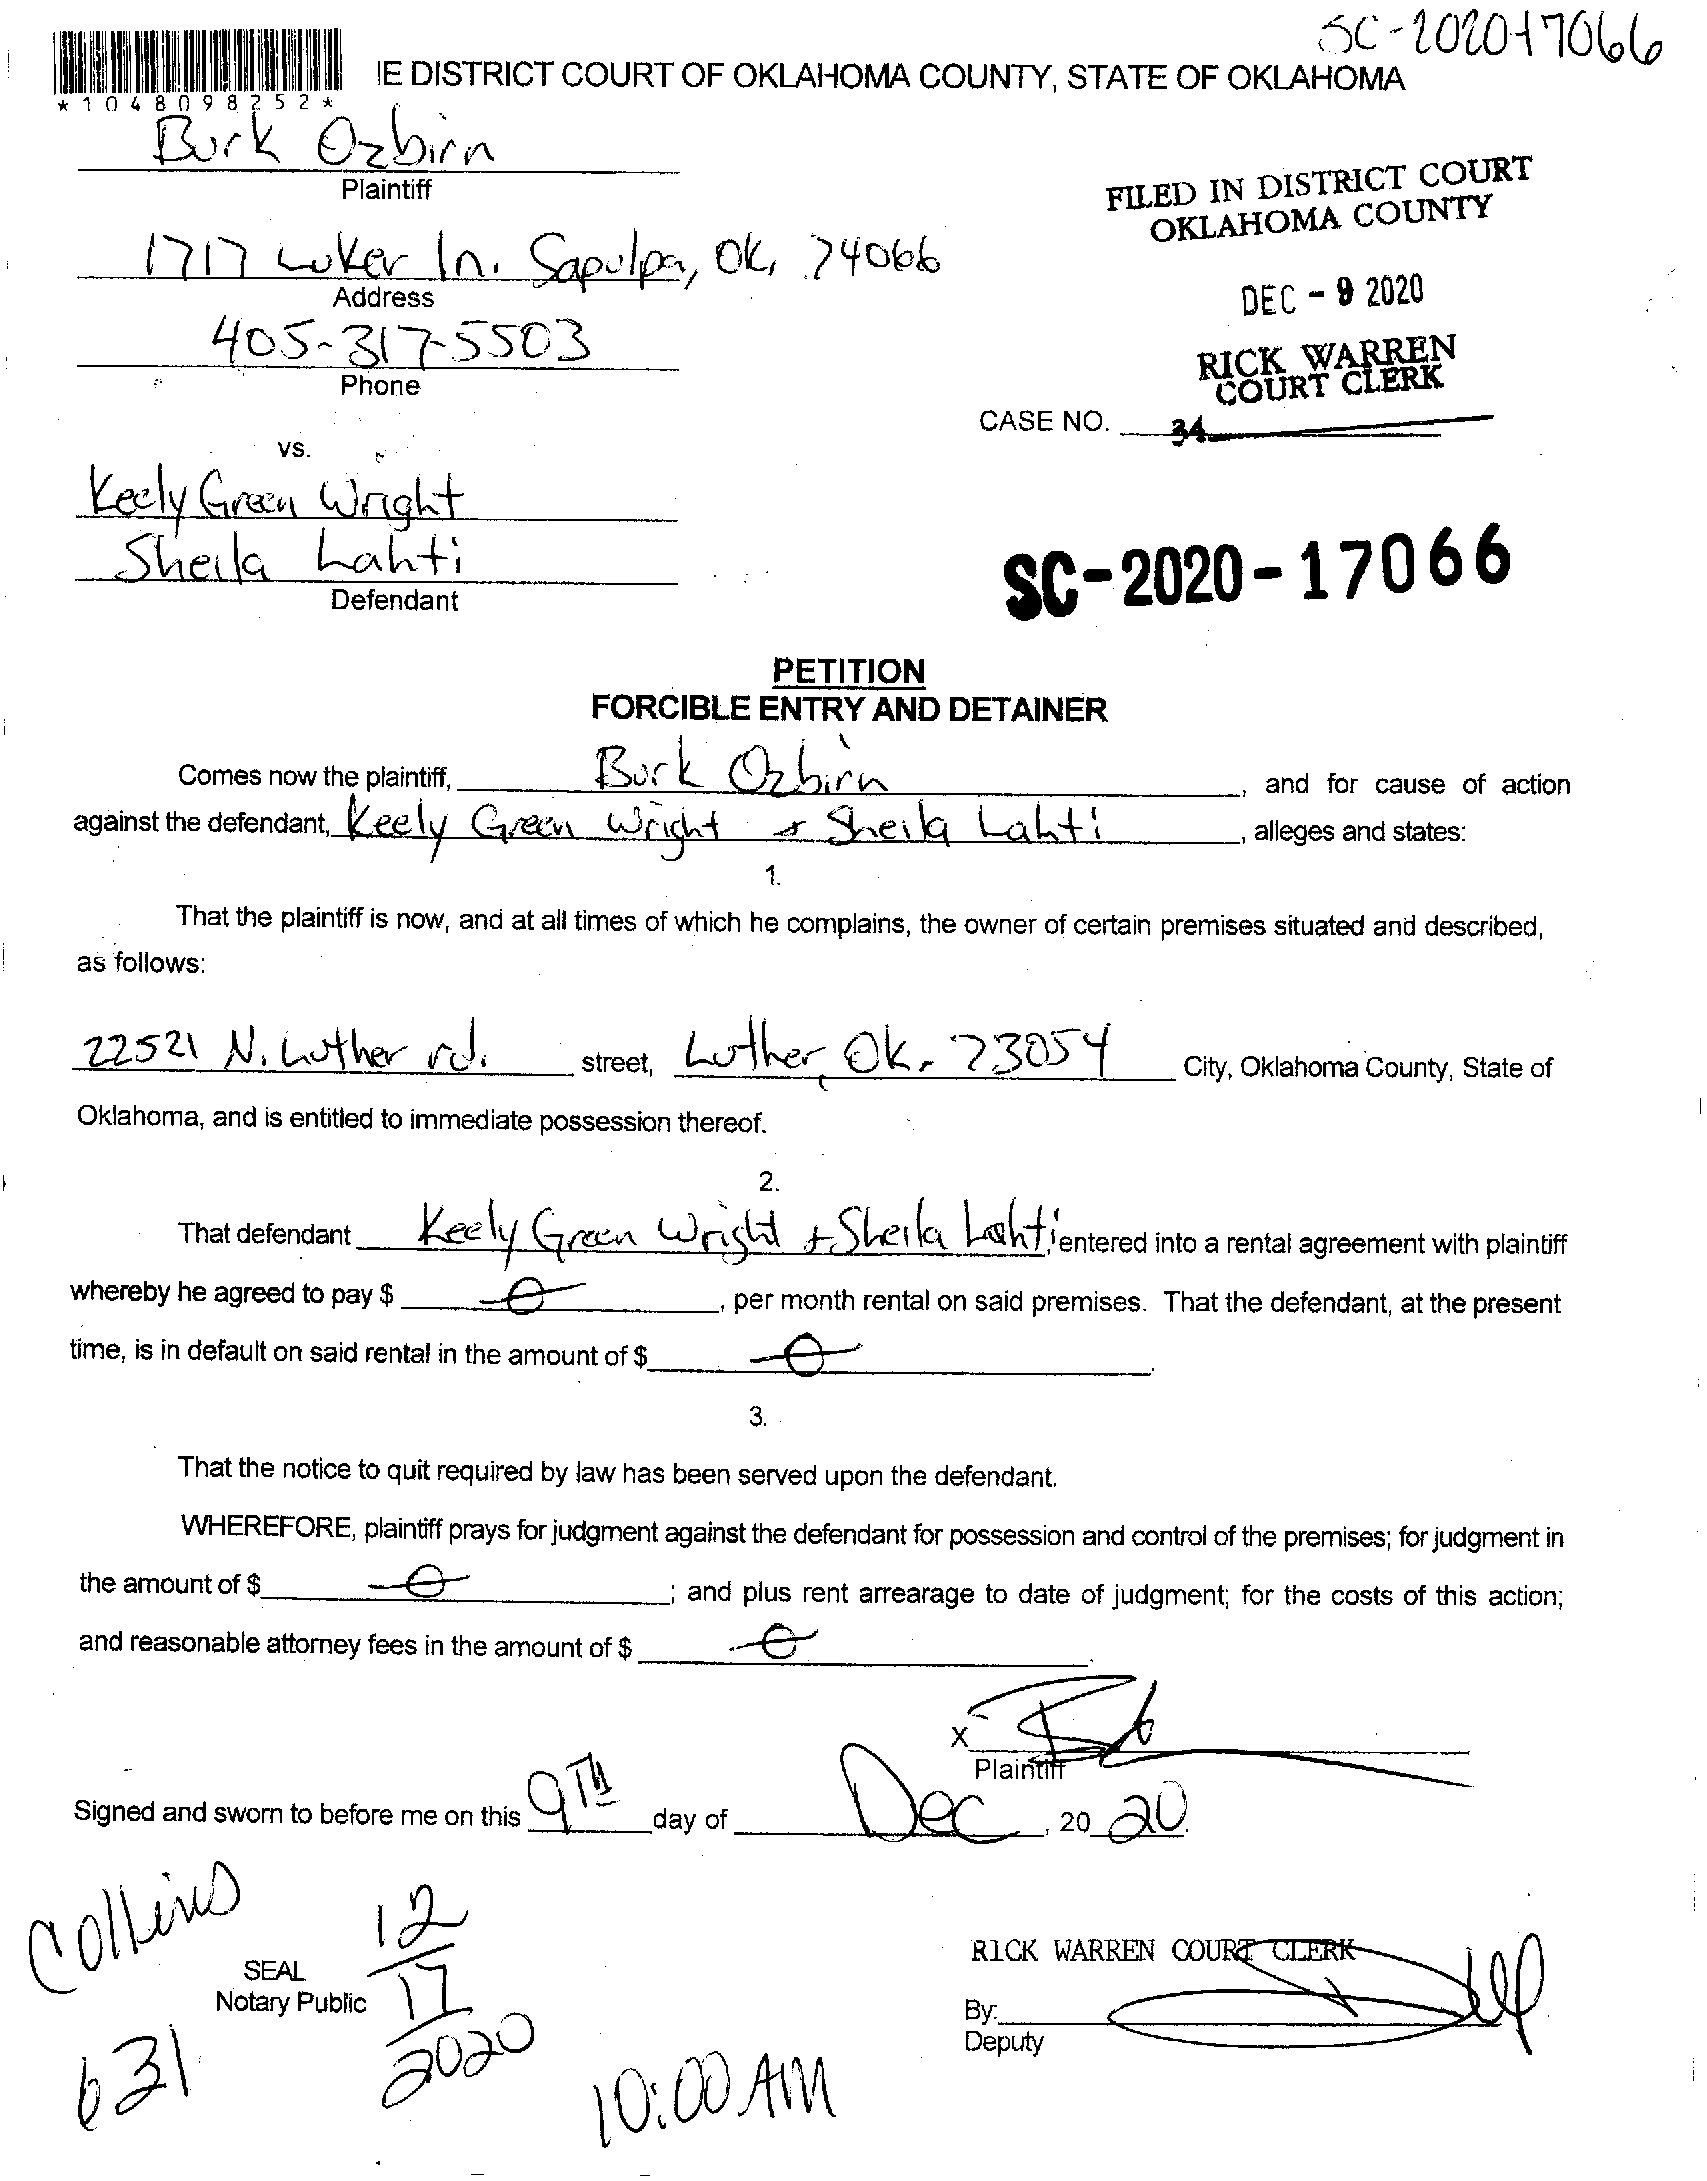 SC-2020-17066
IE DISTRICT COURT OF OKLAHOMA COUNTY, STATE OF OKLAHOMA
*1048098252*
Burk Ozbirn
Plaintiff
FILED IN DISTRICT COURT
OKLAHOMA COUNTY
1717 Luker ln. Sapulpa, Ok, 74066
Address
DEC - 9 2020
405-317-5503
Phone
RICK WARREN
COURT CLERK
CASE NO.
34
vs.
Keely Green Wright
Sheila Lahti
Defendant
SC-2020-17066
PETITION
FORCIBLE ENTRY AND DETAINER
Comes now the plaintiff, Burk Ozbirn, and for cause of action
against the defendant, Keely Green Wright + Sheila Lahti, alleges and states:
1.
That the plaintiff is now, and at all times of which he complains, the owner of certain premises situated and described,
as follows:
22521 N. Luther rd. street, Luther, Ok. 73054 City, Oklahoma County, State of
Oklahoma, and is entitled to immediate possession thereof.
2.
That defendant Keely Green Wright + Sheila Lahti, entered into a rental agreement with plaintiff
whereby he agreed to pay $ 0, per month rental on said premises. That the defendant, at the present
time, is in default on said rental in the amount of $ 0.
3.
That the notice to quit required by law has been served upon the defendant.
WHEREFORE, plaintiff prays for judgment against the defendant for possession and control of the premises; for judgment in
the amount of $ 0; and plus rent arrearage to date of judgment; for the costs of this action;
and reasonable attorney fees in the amount of $ 0.
X
Plaintiff
Signed and sworn to before me on this 9TH day of Dec, 20 20.
Collins
12
SEAL
Notary Public
17
2020
RICK WARREN COURT CLERK
By:
Deputy
631
10:00 AM